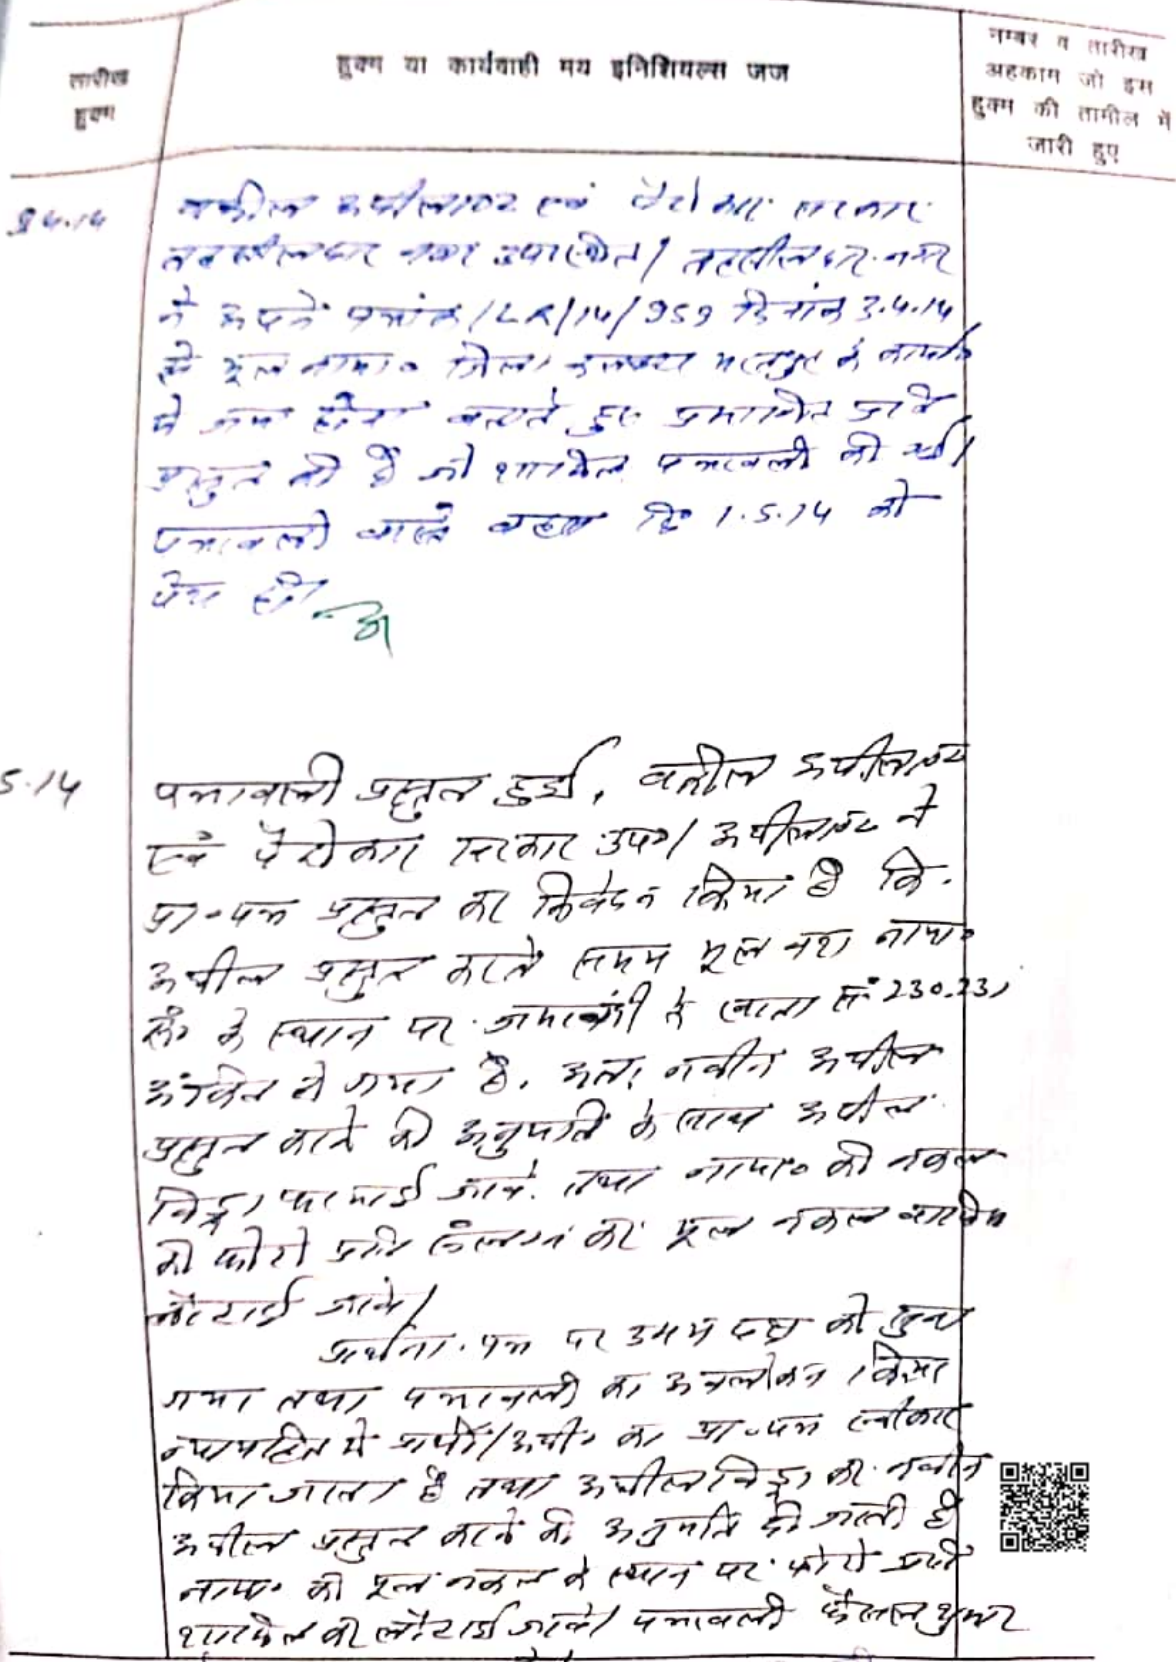 तारीख
हुक्म
हुक्म या कार्यवाही मय इनिशियल्स जज
नम्बर व तारीख
अहकाम जो इस
हुक्म की तामील में
जारी हुए
9.4.14
वकील अपीलान्ट एवं पैरोकार सरकार
तहसीलदार नगर उपस्थित। तहसीलदार नगर
ने अपने पत्रांक/LR/14/959 दिनांक 3.4.14
से मूल नामा० जिला कलक्टर भरतपुर के कार्या०
में जमा होना बताते हुए प्रमाणित प्रति
प्रस्तुत की है जो शामिल पत्रावली की गई।
पत्रावली वास्ते बहस दि० 1.5.14 को
पेश हो।
5.14
पत्रावली प्रस्तुत हुई, वकील अपीलान्ट
एवं पैरोकार सरकार उप०। अपीलान्ट ने
प्रा०पत्र प्रस्तुत कर निवेदन किया है कि
अपील प्रस्तुत करते समय मूल नामा०
सं० के स्थान पर जमाबंदी के खाता सं० 230,231
अंकित हो गया है, अतः नवीन अपील
प्रस्तुत करने की अनुमति के साथ अपील
विड्रा फरमाई जावे. तथा नामा० की नकल
की फोटो प्रति संलग्न कर मूल नकल वापिस
लौटाई जावे।
प्रार्थना पत्र पर उभय पक्ष को सुना
गया तथा पत्रावली का अवलोकन किया
न्यायहित में प्रार्थी/अपी० का प्रा०पत्र स्वीकार
किया जाता है तथा अपील विड्रा कर नवीन
अपील प्रस्तुत करने की अनुमति दी जाती है
नामा० की मूल नकल के स्थान पर फोटो प्रति
शामिल कर लौटाई जावे। पत्रावली फैसल शुमार